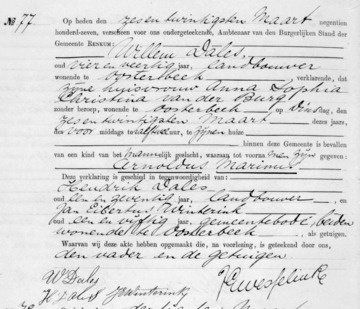 № 77.
Op heden den zes en twintigsten Maart negentien
honderd-zeven, verscheen voor ons ondergeteekende, Ambtenaar van den Burgerlijken Stand der
Gemeente RENKUM: Willem Dales,
oud vier en veertig jaar, landbouwer
wonende te Oosterbeek, verklarende, dat
zijne huisvrouw Anna Sophia
Christina van der Burg
zonder beroep, wonende te Oosterbeek, op Dinsdag, den
zes en twintigsten Maart dezes jaars,
des voor middags te half uur, te zijnen huize
binnen deze Gemeente is bevallen
van een kind van het mannelijk geslacht, waaraan tot voornamen zijn gegeven:
Arnoldus Marinus
Deze verklaring is geschied in tegenwoordigheid van:
Hendrik Dales
oud een en zeventig jaar, landbouwer en
Jan Eibertus Winterink
oud een en vijftig jaar, gemeentebode, beiden
wonende te Oosterbeek als getuigen.
Waarvan wij deze akte hebben opgemaakt die, na voorlezing, is geteekend door ons,
den vader en de getuigen
W Dales
H Dales JE Winterink